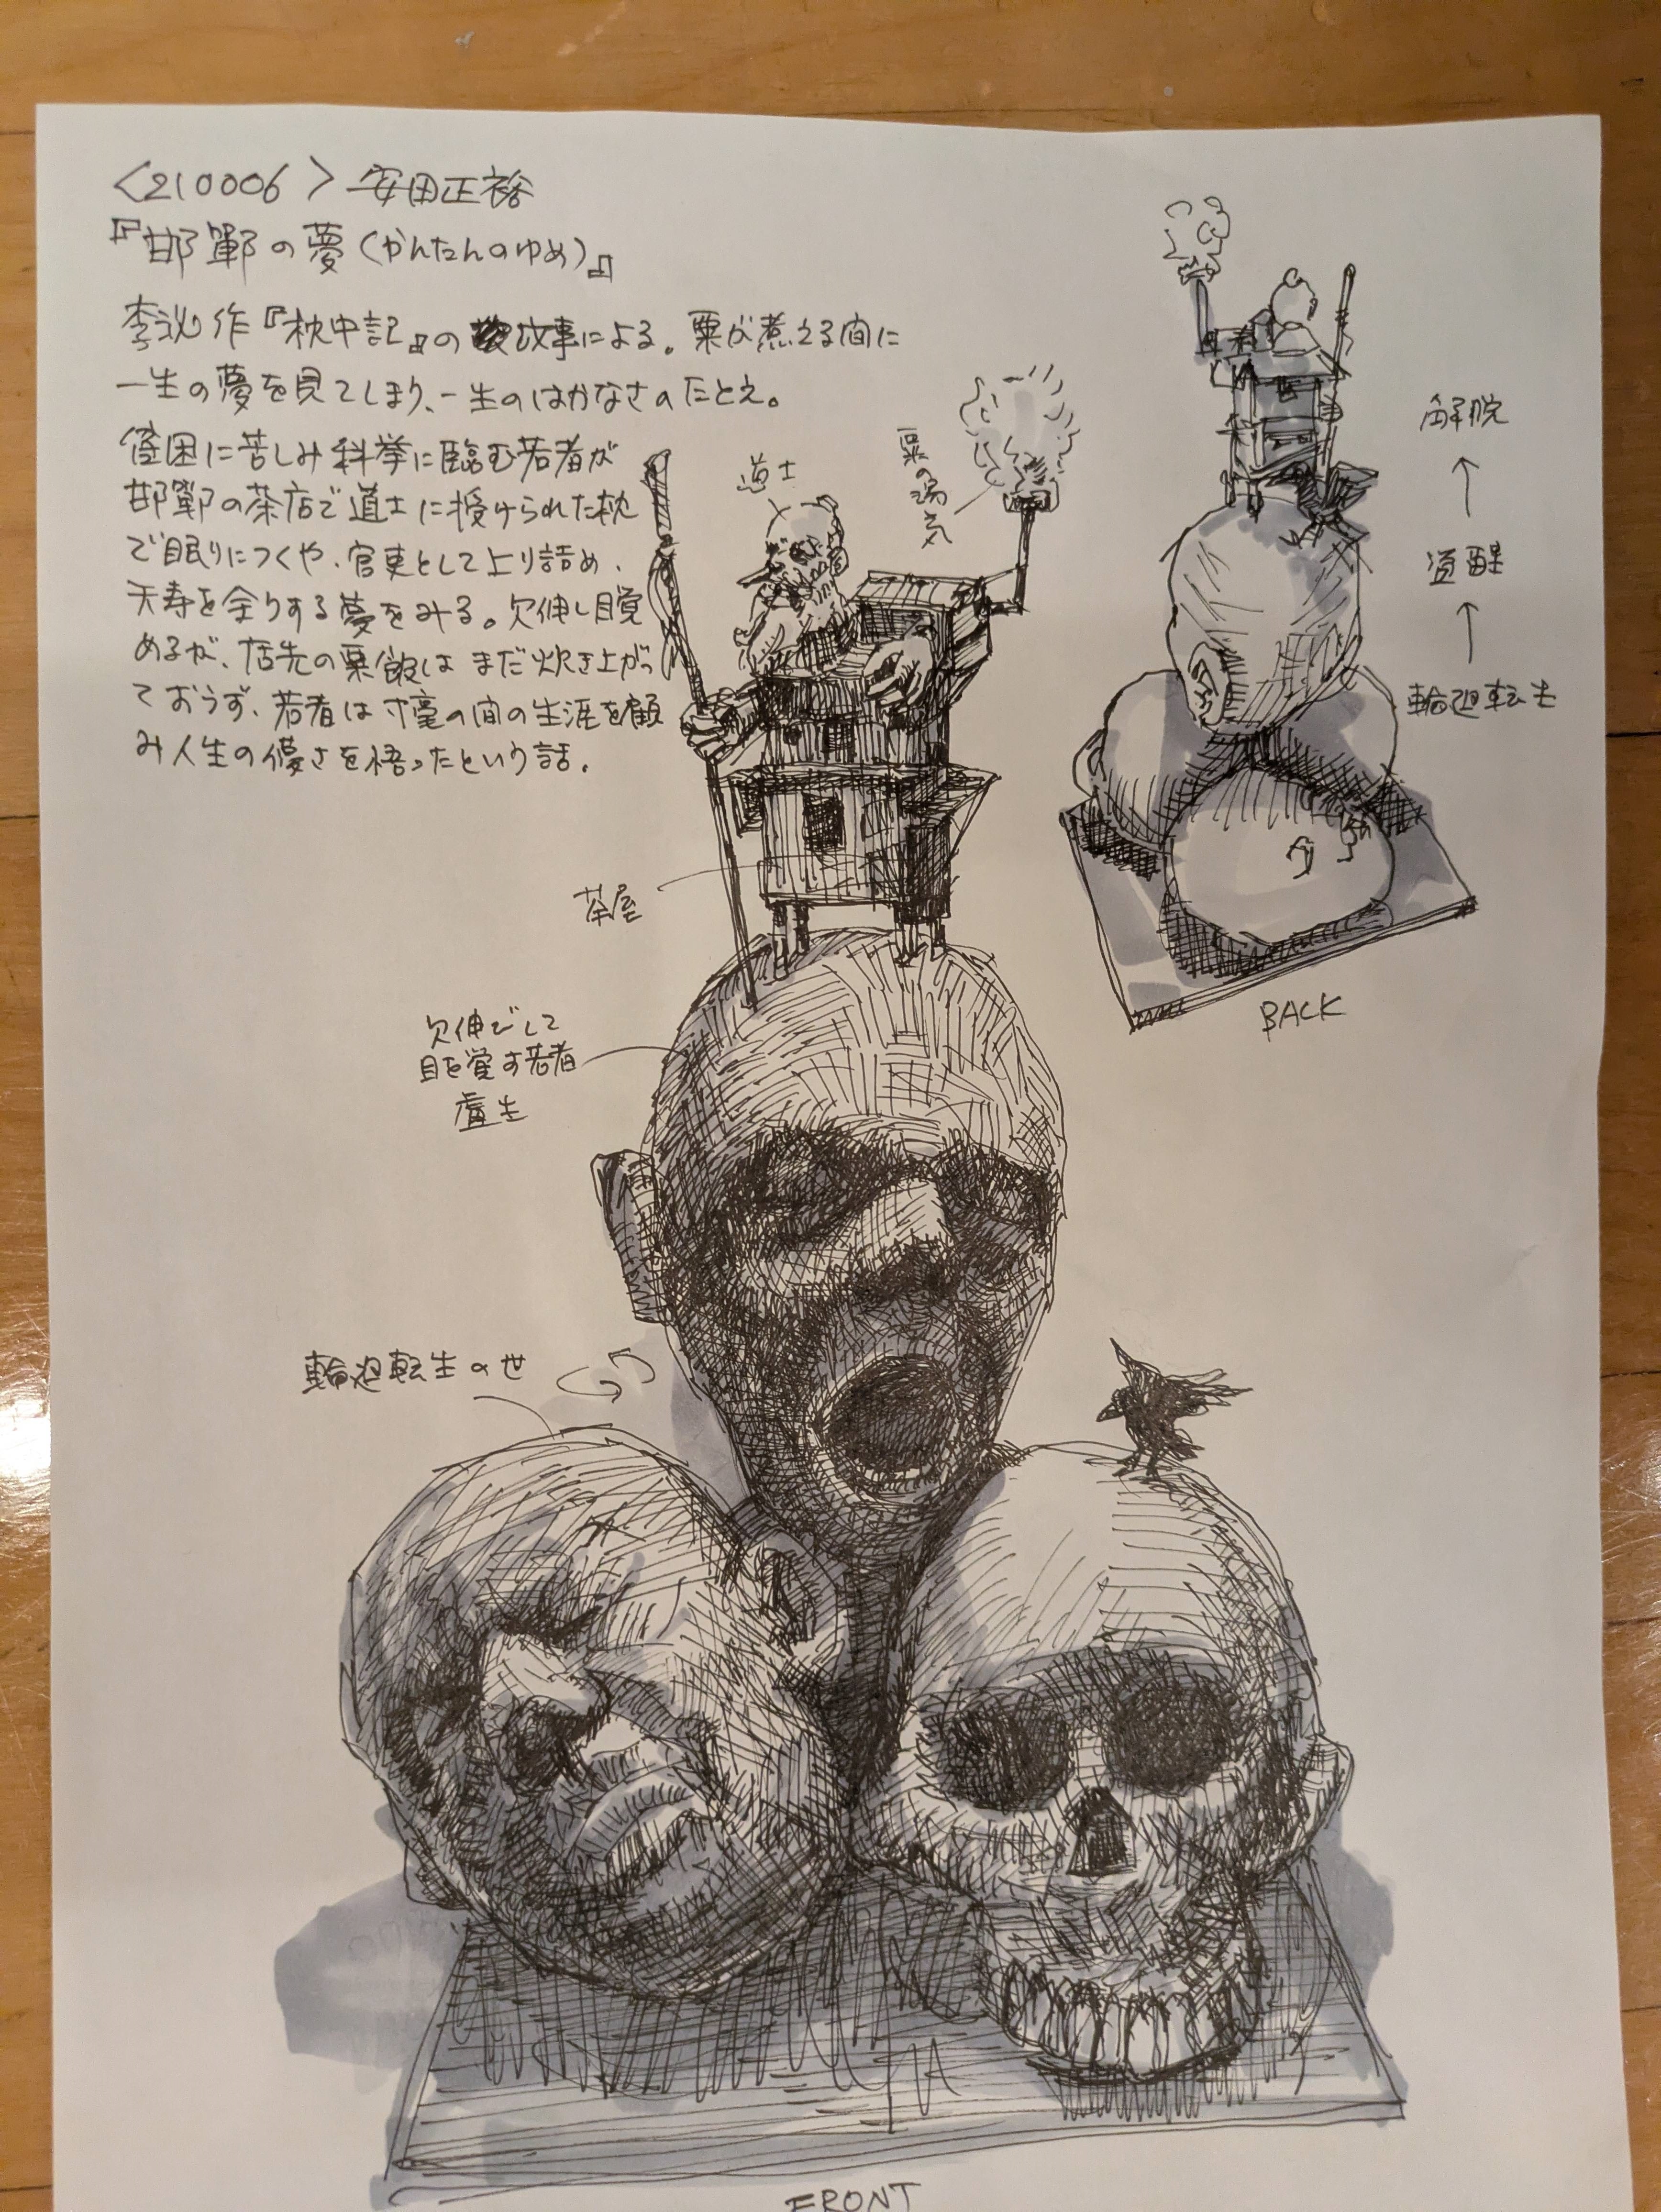 <210006> 安田正裕
『邯鄲の夢(かんたんのゆめ)』
李泌作『枕中記』の故事による。粟が煮える間に
一生の夢を見てしまり、一生のはかなさのたとえ。
貧困に苦しみ科挙に臨む若者が
邯鄲の茶店で道士に授けられた枕
で眠りにつくや、官吏として上り詰め、
天寿を全りする夢をみる。欠伸し目覚
めるが、店先の粟飯はまだ炊き上がっ
ておらず、若者は寸毫の間の生涯を顧
み人生の儚さを悟ったという話。
道士
粟の湯気
茶屋
欠伸びして
目を覚す若者
盧生
輪廻転生の世
解脱
↑
覚醒
↑
輪廻転生
BACK
FRONT